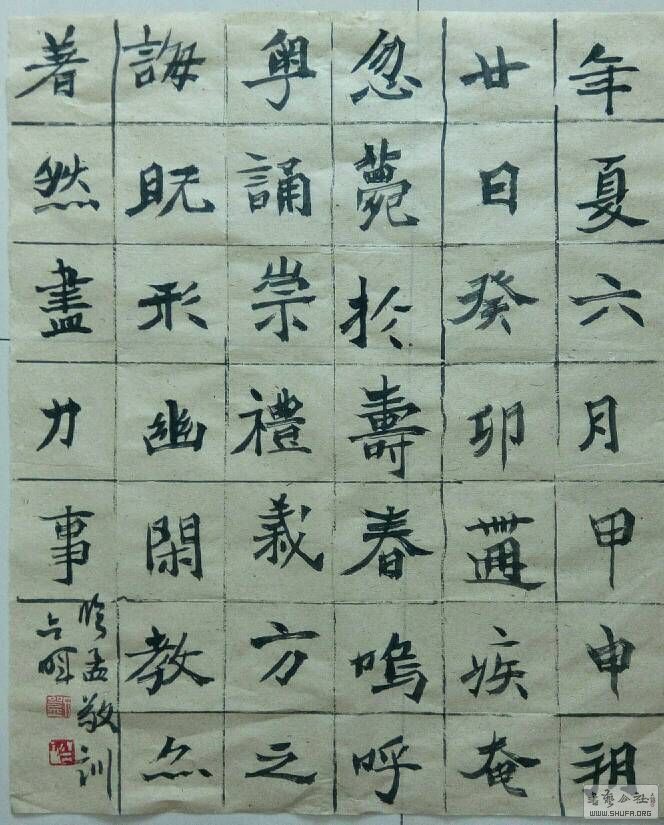 年夏六月甲申朔
廿日癸卯遘疾奄
忽薨於壽春嗚呼
粵誦崇禮義方之
誨既形幽閑教亦
著然盡力事
临孟敬訓
书艺公社
WWW.SHUFA.ORG